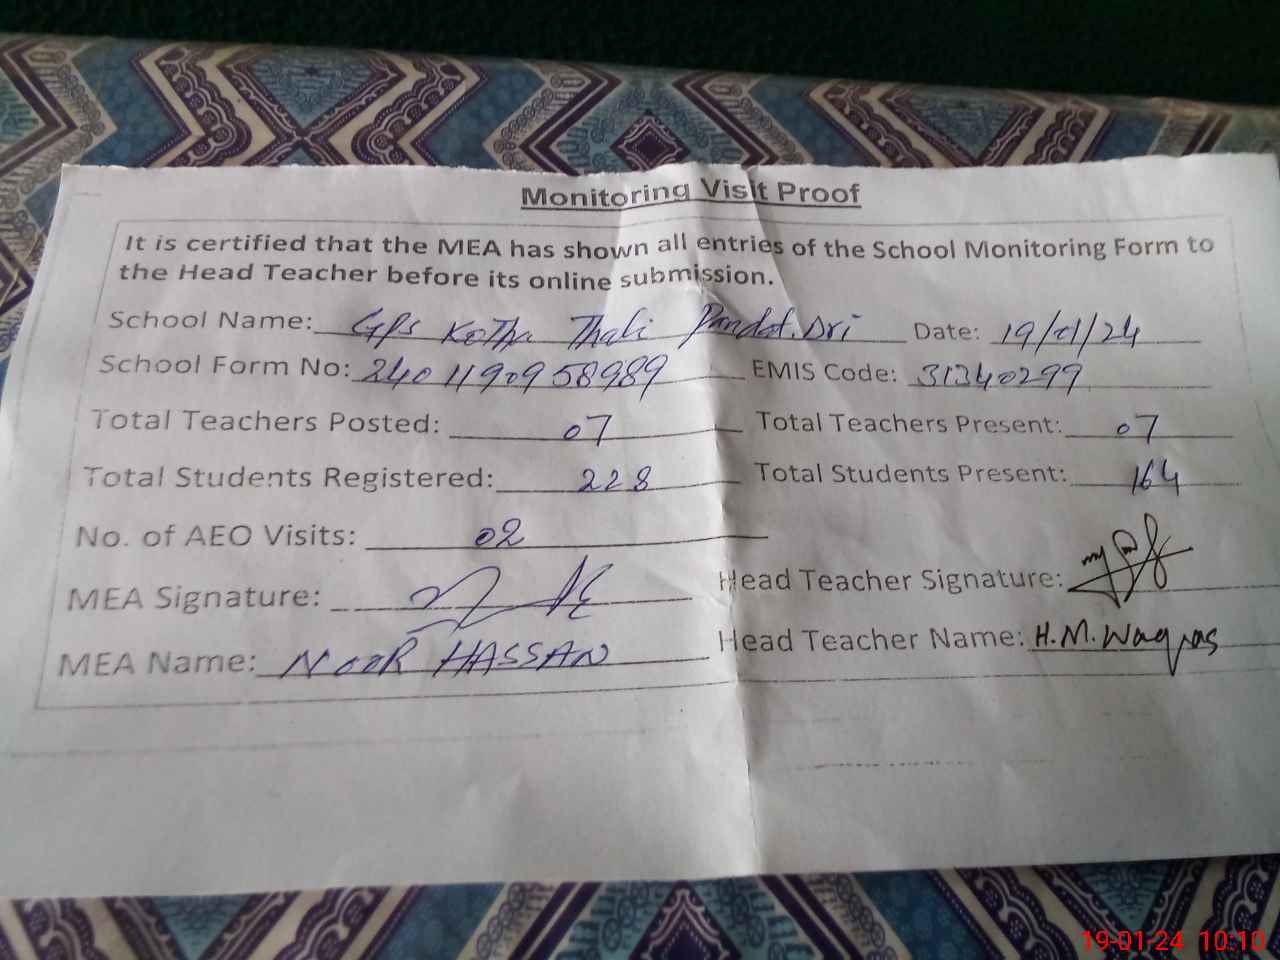 Monitoring Visit Proof
It is certified that the MEA has shown all entries of the School Monitoring Form to
the Head Teacher before its online submission.
School Name: GPS Kotha Thali Date: 19/01/24
School Form No: 2401190958989 EMIS Code: 31340299
Total Teachers Posted: 07 Total Teachers Present: 07
Total Students Registered: 228 Total Students Present: 164
No. of AEO Visits: 02
MEA Signature: Head Teacher Signature:
MEA Name: NOOR HASSAN Head Teacher Name: H.M.Waqas
19-01-24 10:10